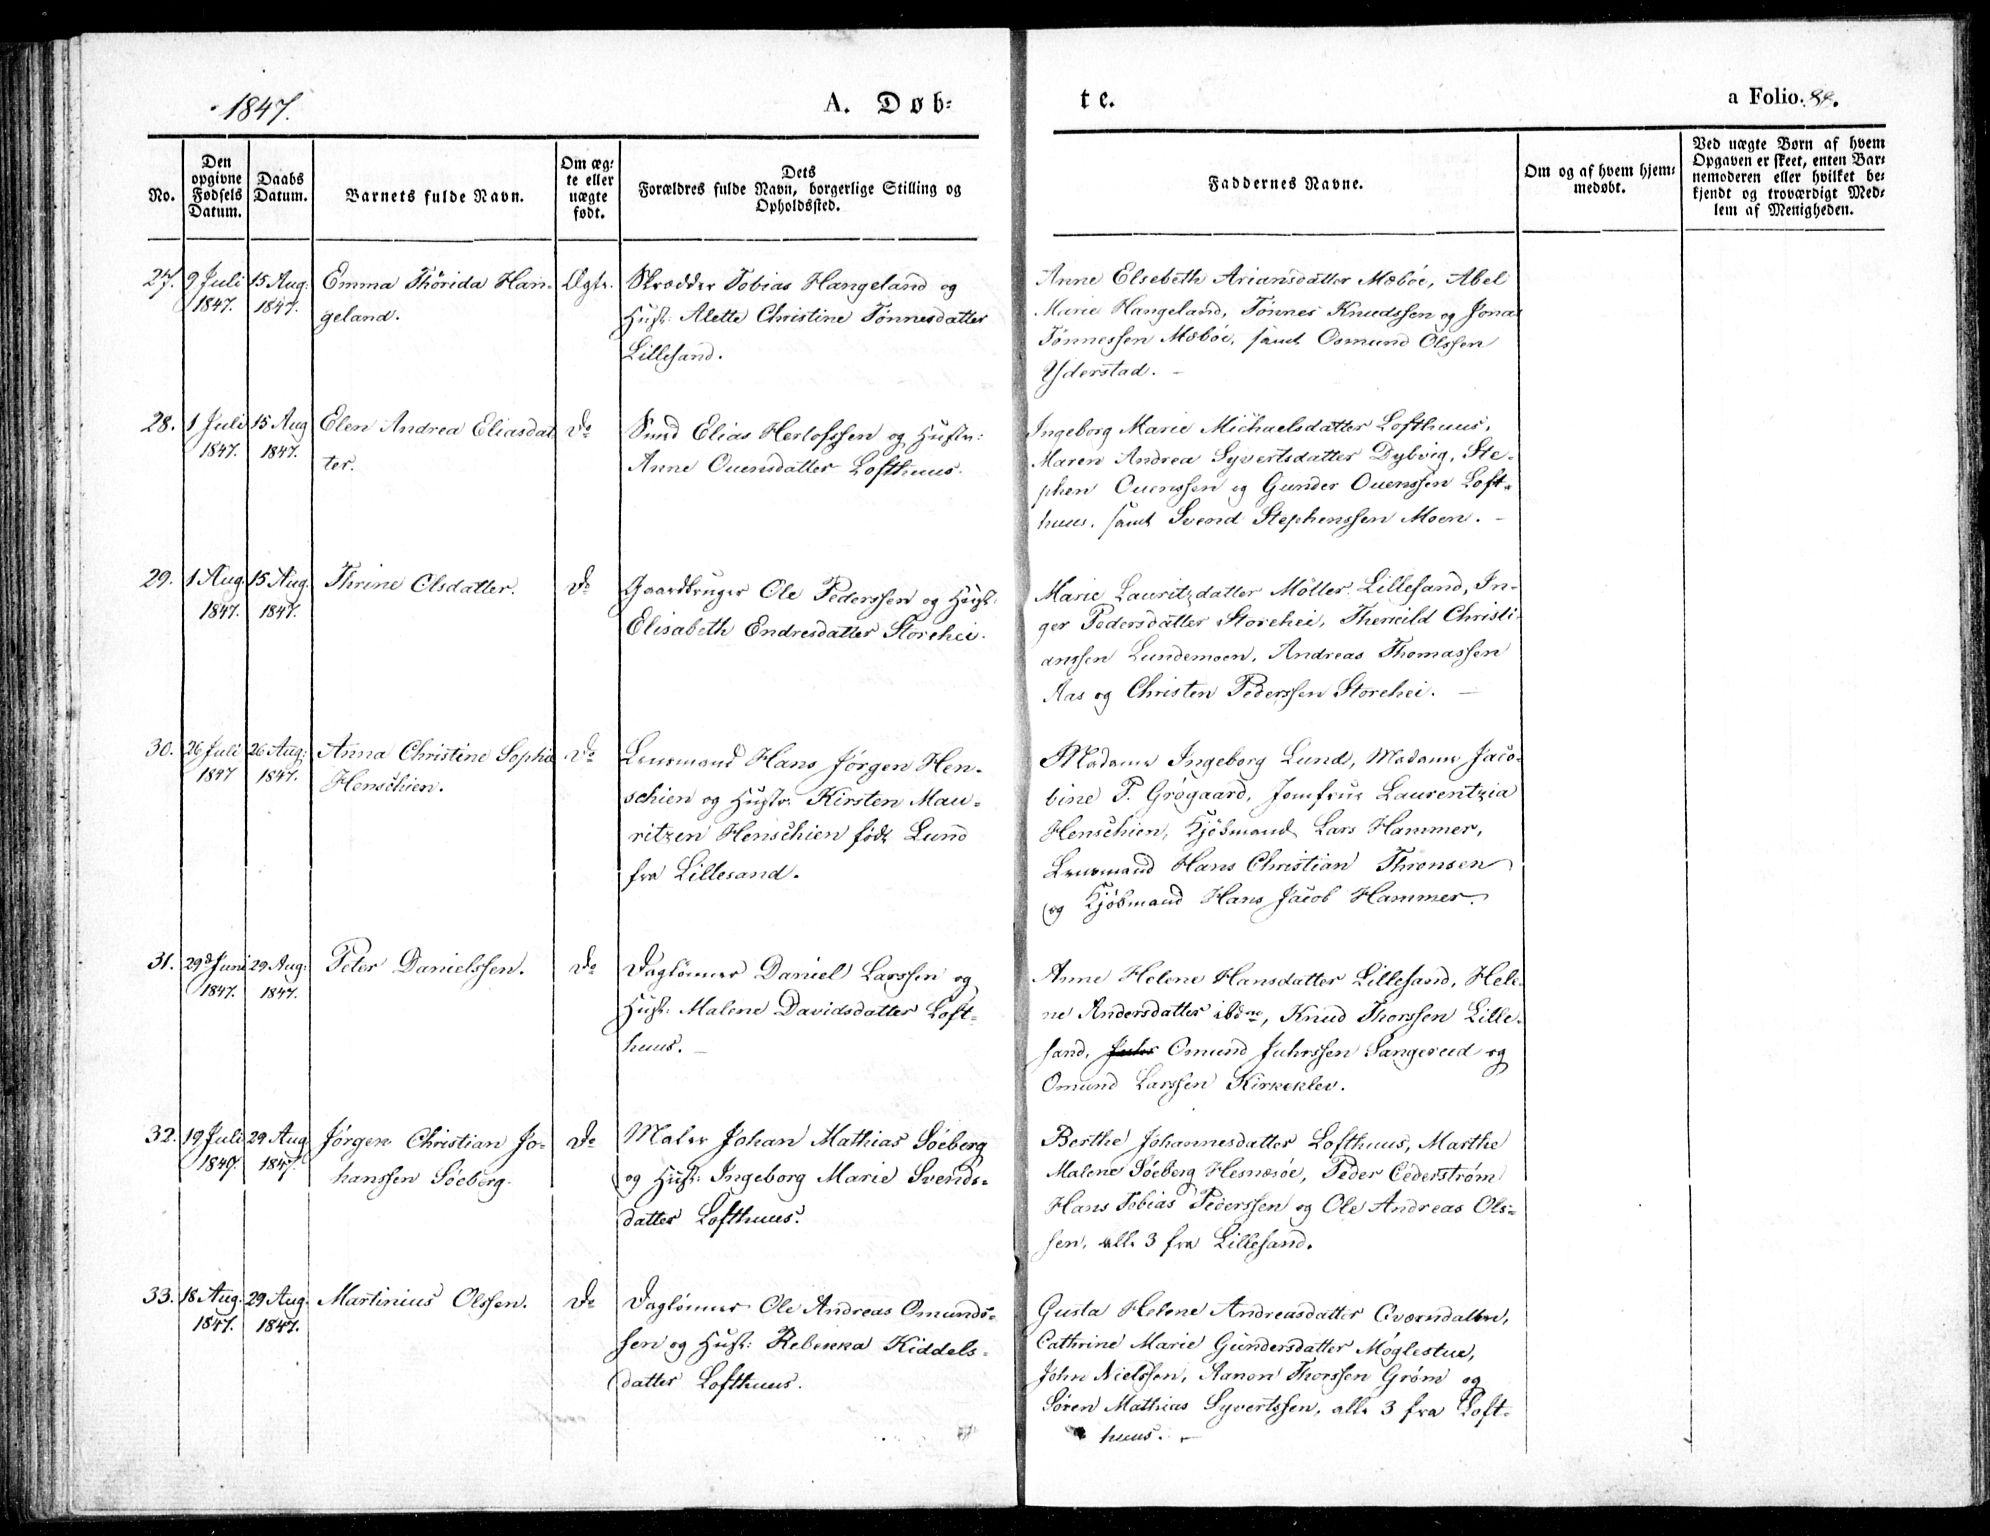 1847.
A. Døb-
te.
a Folio. 88.
No.
Den
opgivne
Fødsels
Datum.
Daabs
Datum.
Barnets fulde Navn.
Om æg-
te eller
uægte
født.
Dets
Forældres fulde Navn, borgerlige Stilling og
Opholdssted.
Faddernes Navne.
Om og af hvem hjem-
medøbt.
Ved uægte Børn af hvem
Opgaven er skeet, enten Bar-
nemoderen eller hvilket be-
kjendt og troværdigt Med-
lem af Menigheden.
27.
9 Juli
1847.
15 Aug.
1847.
Emma Thorida Han-
geland.
Ægte.
Skrædder Tobias Hangeland og
Hust: Alette Christine Tønnesdatter
Lillesand.
Anne Elsebeth Ariansdatter Mæbøe, Abel
Marie Hangeland, Tønnes Knudssen og Jonas
Tønnessen Mæbøe, samt Osmund Olssen
Yderstad. –
28.
1 Juli
1847.
15 Aug
1847.
Elen Andrea Eliasdat
ter.
Do
Smed Elias Herlofssen og Hustr:
Anne Ouensdatter Lofthuus.
Ingeborg Marie Michaelsdatter Lofthuus,
Maren Andrea Syvertsdatter Dybvig, Ste-
phen Ouenssen og Gunder Ouenssen Loft-
huus, samt Svend Stephenssen Moen. –
29.
1 Aug.
1847.
15 Aug.
1847.
Thrine Olsdatter.
Do
Gaardbruger Ole Pederssen og Hust:
Elisabeth Endresdatter Storehei.
Marie Lauritzdatter Möller Lillesand, In-
ger Pedersdatter Storehei, Christi-
anssen Lundemoen, Andreas Thomassen
Aas og Christen Pederssen Storehei. –
30.
26 Juli
1847
26 Aug:
1847.
Anna Christine Sophie
Henschien.
Do
Lensmand Hans Jørgen Hen-
schien og Hustr: Kirsten Mau-
ritzen Henschien født Lund
fra Lillesand.
Madame Ingeborg Lund, Madame Jaco-
bine P. Grøgaard, Jomfrue Laurentzia
Henschien, Kjøbmand Lars Hammer,
Lensmand Hans Christian Thronsen
og Kjøbmand Hans Jacob Hammer.
31.
29d Juni
1847.
29 Aug:
1847.
Peter Danielssen.
Do
Daglönner Daniel Larssen og
Hust: Malene Davidsdatter Loft-
huus. –
Anne Helene Hansdatter Lillesand, Hele-
ne Andersdatter ibdne, Knud Thorssen Lille-
sand, Omund Juhrssen Sangereid og
Omund Larssen Kirkeklev.
32.
19 Juli
1847.
29 Aug
1847.
Jörgen Christian Jo-
hanssen Söeberg.
Do
Maler Johan Mathias Söeberg
og Hust: Ingeborg Marie Svends-
datter Lofthuus.
Berthe Johannesdatter Lofthuus, Marthe
Malene Söeberg Hesnæsöe, Peder Cederstrøm
Hans Tobias Pederssen og Ole Andreas Ols-
sen, alle 3 fra Lillesand.
33.
18 Aug.
1847.
29 Aug.
1847.
Martinius Olssen.
Do
Daglönner Ole Andreas Omunds-
sen og Hust: Rebekka Kiddels-
datter Lofthuus.
Gusta Helene Andreasdatter Qværndalen,
Cathrine Marie Gundersdatter Møglestue,
John Nielssen, Aanon Thorssen Grøm og
Søren Mathias Syvertssen, alle 3 fra Loft-
huus. –